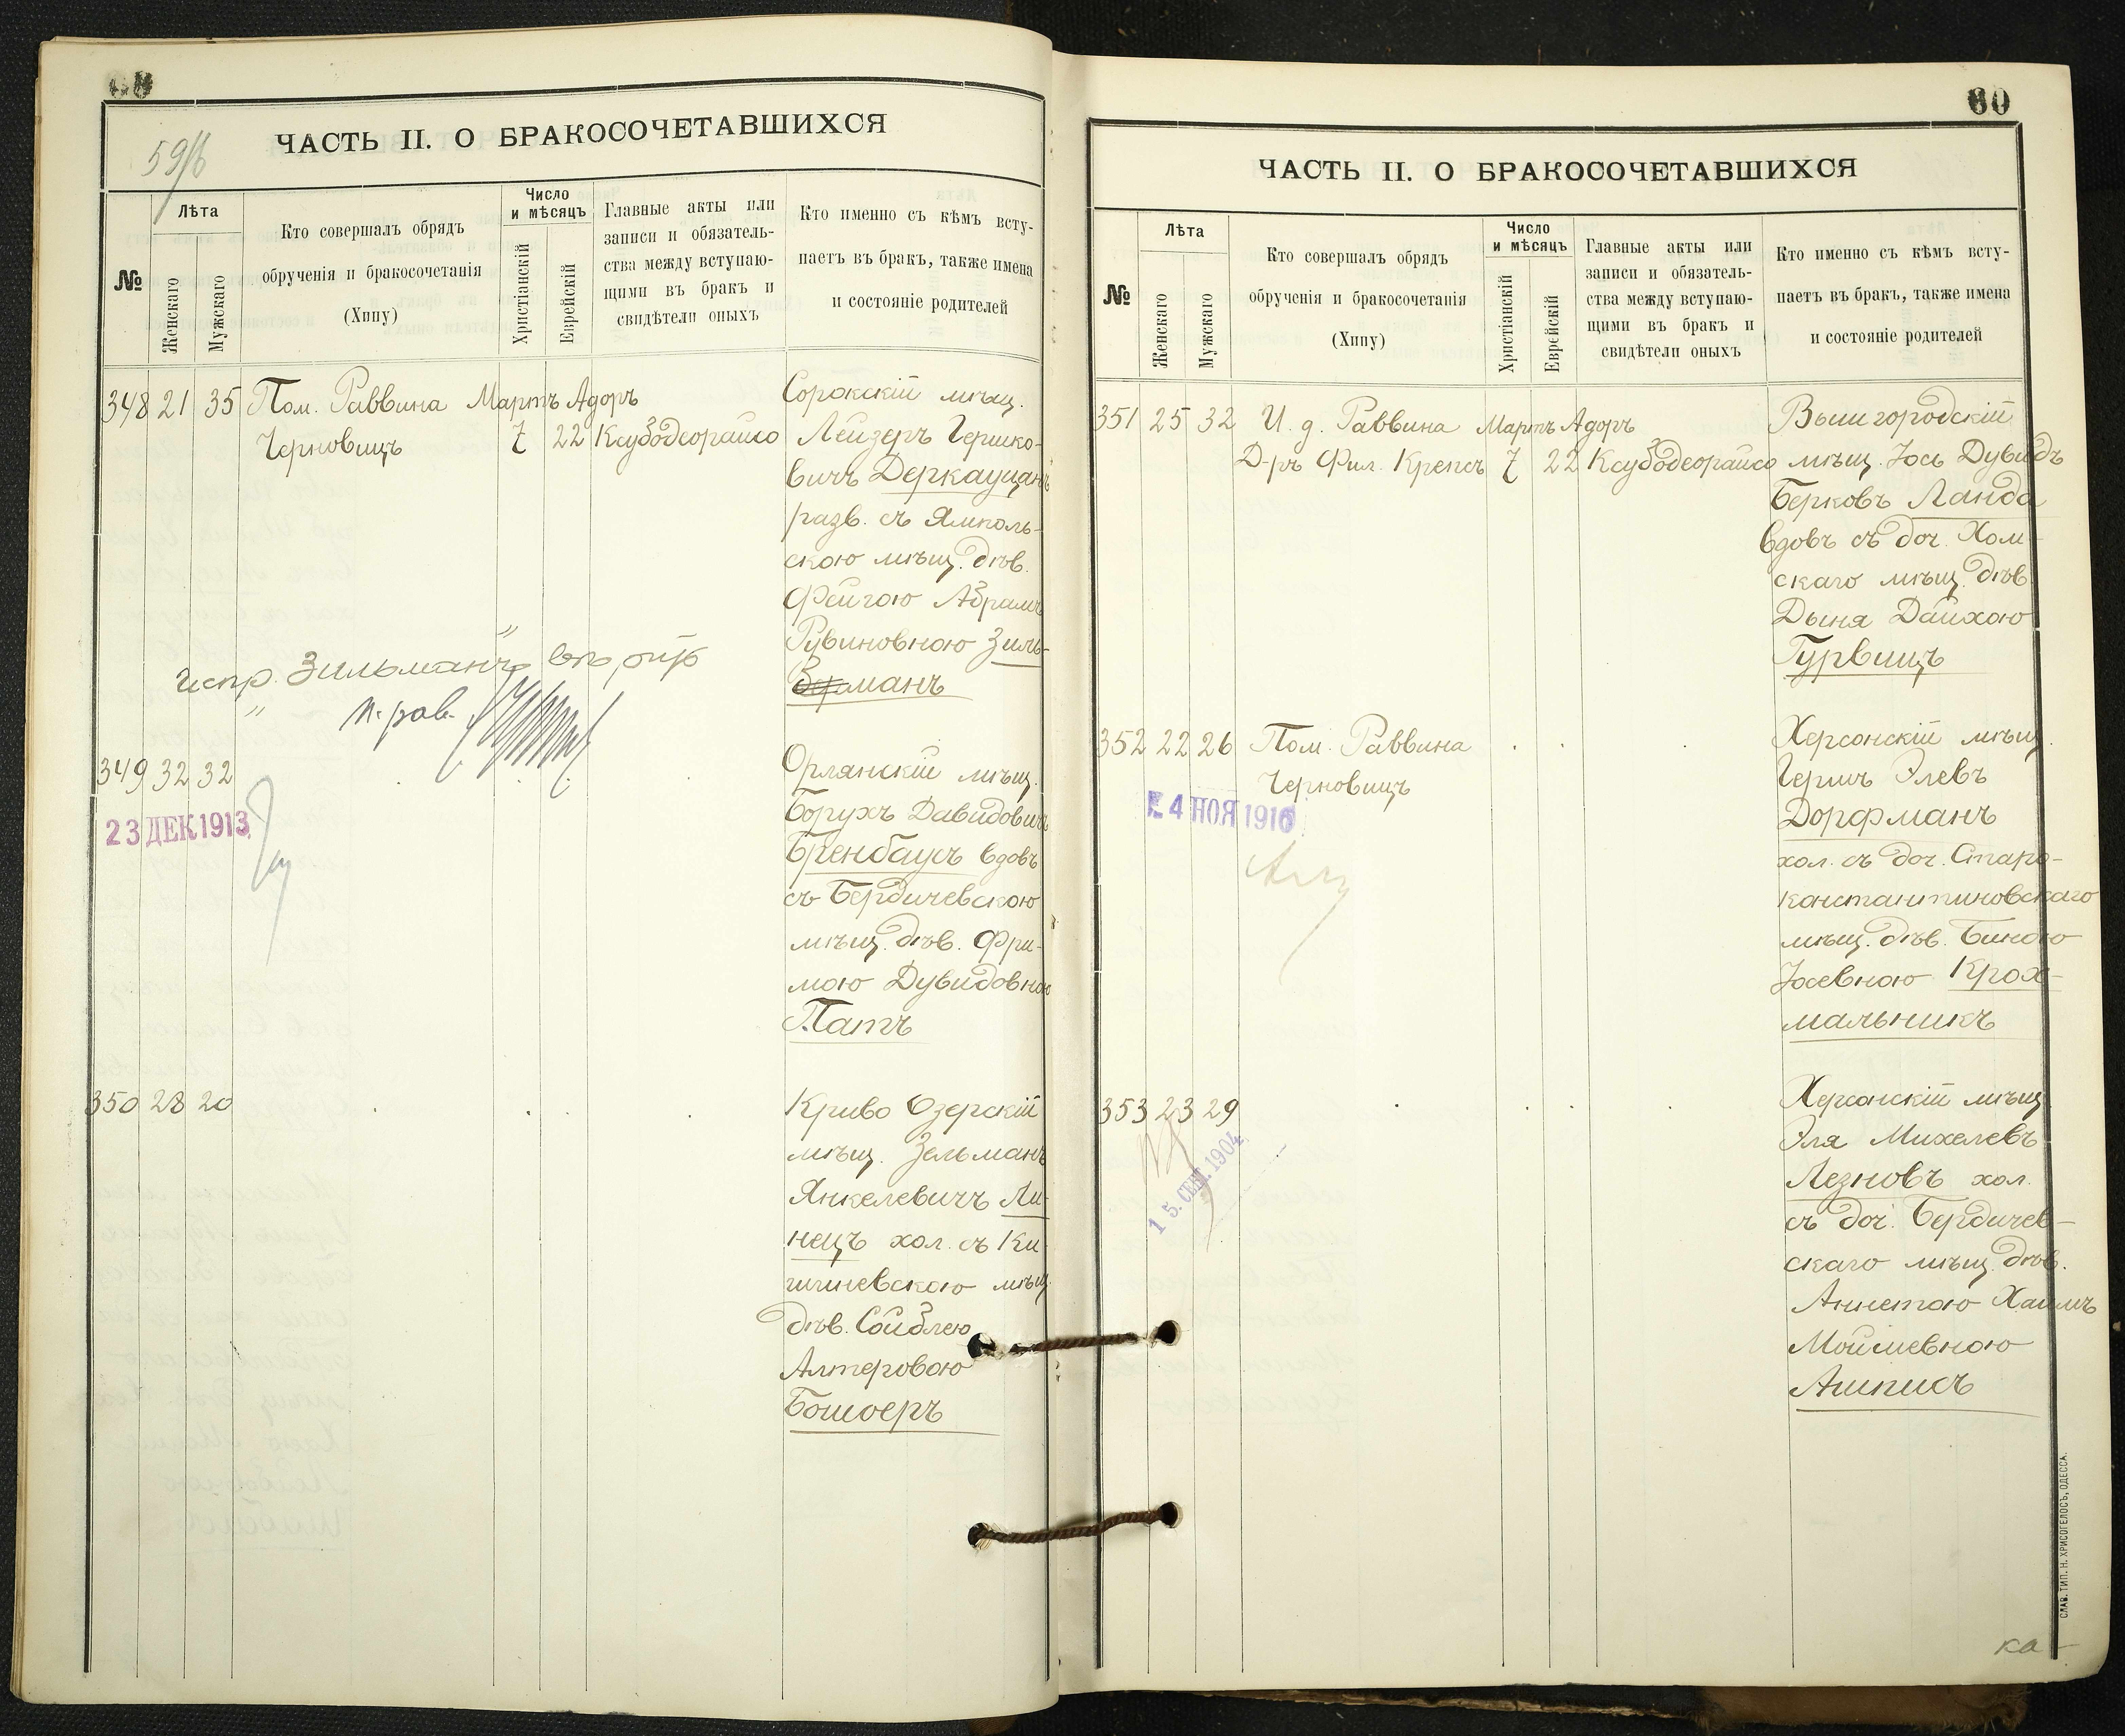 59/б
ЧАСТЬ II. О БРАКОСОЧЕТАВШИХСЯ
№
Лѣта
Женскаго
Мужскаго
Кто совершалъ обрядъ
обрученія и бракосочетанія
(Хипу)
Число
и мѣсяцъ
Христіанскій
Еврейскій
Главные акты или
записи и обязатель-
ства между вступаю-
щими въ бракъ и
свидѣтели оныхъ
Кто именно съ кѣмъ всту-
паетъ въ бракъ, также имена
и состояніе родителей
348 21 35 Пом. Раввина Мартъ Адоръ
Черновицъ 7 22 Ксубодеорайсо
Сорокскій мѣщ.
Лейзеръ Гершко-
вичъ Деркауцанъ
разв. съ Ямполь-
скою мѣщ. дѣв.
Фейгою Абрамъ
Рувиновною Зиль-
манъ
испр. Зильманъ
п. рав.
349 32 32
23 ДЕК 1913
Орлянскій мѣщ.
Борухъ Давидовичъ
Бренбаусъ вдовъ
съ Бердичевскою
мѣщ. дѣв. Фри-
мою Дувидовною
Патъ
350 28 20
Криво Озерскій
мѣщ. Зельманъ
Янкелевичъ Ли-
нецъ хол. съ Ки-
шиневскою мѣщ.
дѣв. Сойблею
Алтеровою
Бошоеръ
60
ЧАСТЬ II. О БРАКОСОЧЕТАВШИХСЯ
№
Лѣта
Женскаго
Мужскаго
Кто совершалъ обрядъ
обрученія и бракосочетанія
(Хипу)
Число
и мѣсяцъ
Христіанскій
Еврейскій
Главные акты или
записи и обязатель-
ства между вступаю-
щими въ бракъ и
свидѣтели оныхъ
Кто именно съ кѣмъ всту-
паетъ въ бракъ, также имена
и состояніе родителей
351 25 32 И. д. Раввина Мартъ Адоръ
Д-ръ Фил. Крепсъ 7 22 Ксубодеорайсо
Вышгородскій
мѣщ. Іось Дувидъ
Берковъ Ланда
вдовъ съ доч. Хом-
скаго мѣщ. дѣв.
Дыня Дайхою
Гурвицъ
352 22 26 Пом. Раввина
Черновицъ
4 НОЯ 1916
Херсонскій мѣщ.
Гершъ Элевъ
Дорфманъ
хол. съ доч. Старо-
константиновскаго
мѣщ. дѣв. Биною
Іосевною Крох-
мальникъ
353 23 29
15. СЕН. 1904
Херсонскій мѣщ.
Эля Михелевъ
Лезновъ хол.
съ доч. Бердичев-
скаго мѣщ. дѣв.
Аннетою Хаимъ
Мойшевною
Ашписъ
СЛАВ. ТИП. Н. ХРИСОГЕЛОСЪ, ОДЕССА.
ка-